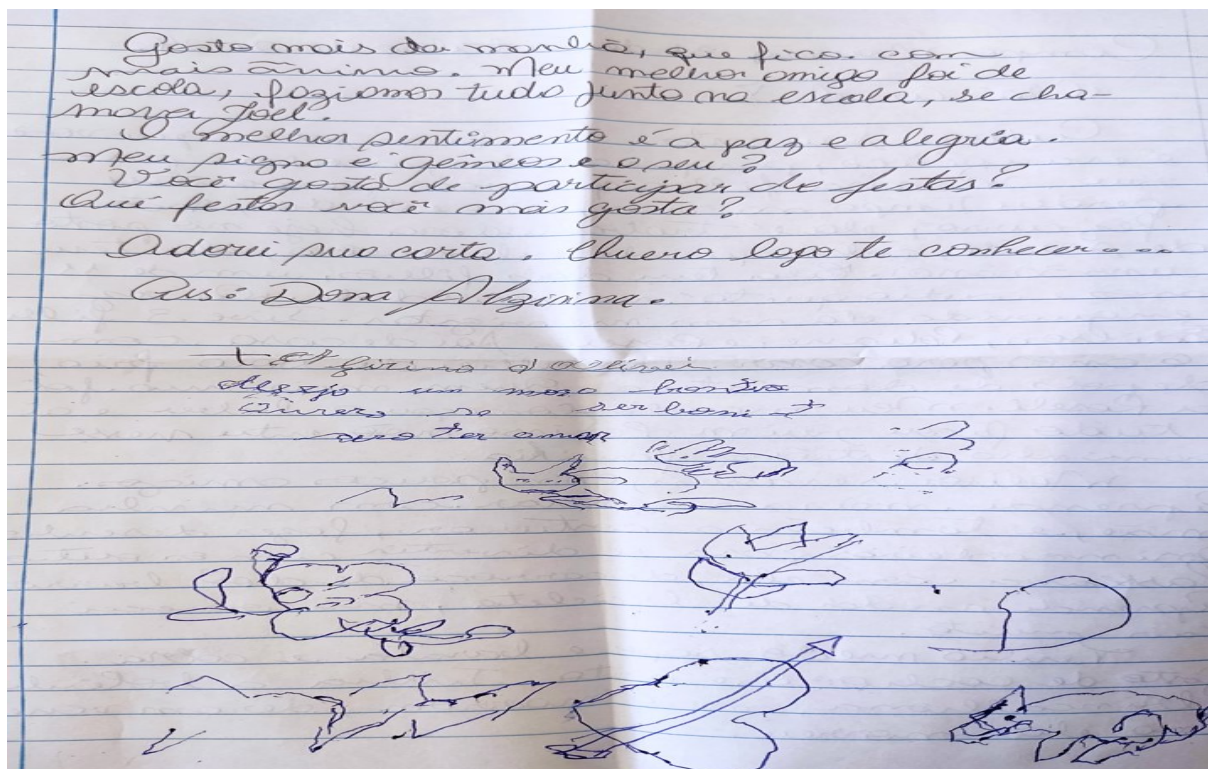 Gosto mais da manhã, que fico com
mais ânimo. Meu melhor amigo foi de
escola, faziamos tudo junto na escola, se cha-
mava Joel.
O melhor sentimento é a paz e alegria.
Meu signo é gêmeos e o seu?
Você gosta de participar de festas?
Que festas você mais gosta?
Adorei sua carta. Quero logo te conhecer...
Ass: Dona Alzirina.
desejo um
ser
ter amor